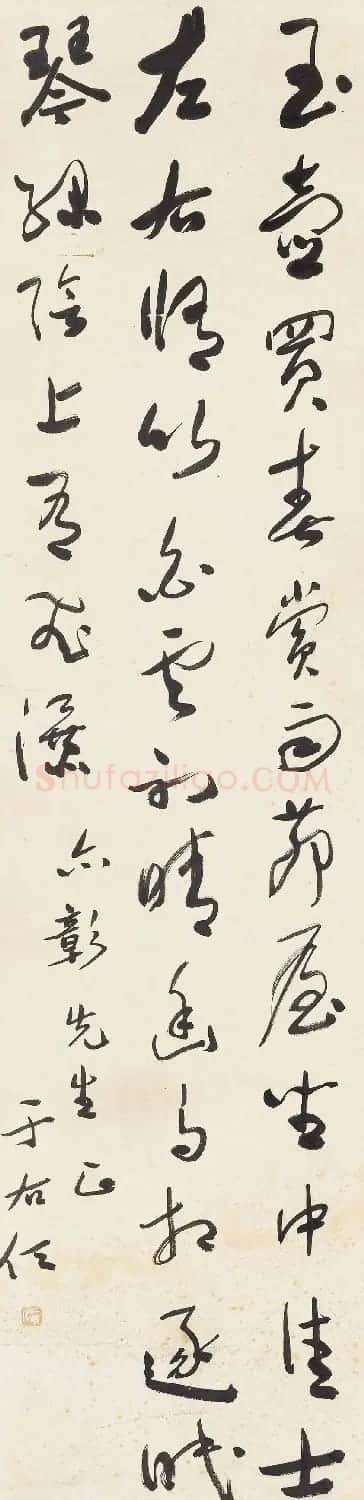 玉壺買春賞雨茆屋坐中佳士
左右脩竹白雲初晴幽鳥相逐眠
琴綠陰上有飛瀑
亦彰先生正
于右任
Shufaziliao.COM